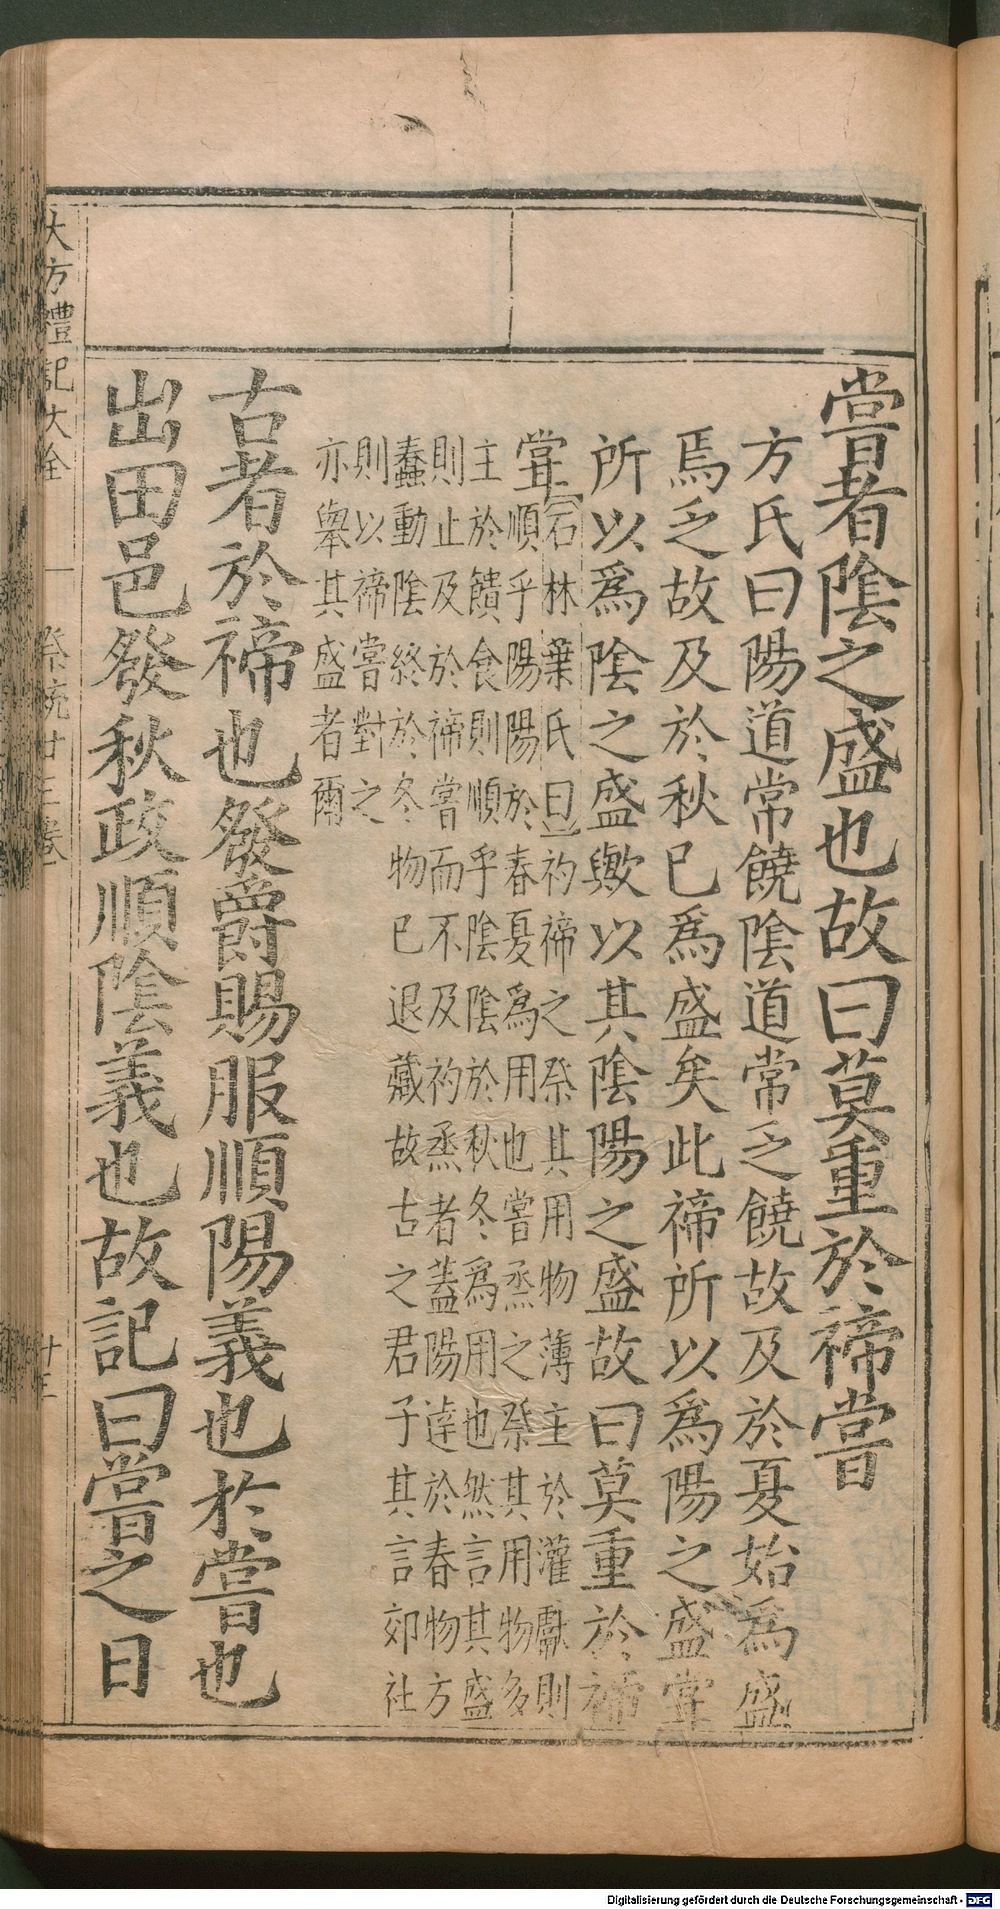 嘗者陰之盛也故曰莫重於禘嘗
方氏曰陽道常饒陰道常乏饒故及於夏始為盛
焉乏故及於秋已為盛矣此禘所以為陽之盛甞
所以為陰之盛歟以其陰陽之盛故曰莫重於禘
甞
石林葉氏曰礿禘之祭其用物薄主於灌獻則
順乎陽陽於春夏為用也嘗烝之祭其用物多
主於饋食則順乎陰陰於秋冬為用也然言其盛
則止及於禘嘗而不及礿烝者蓋陽達於春物方
蠢動陰終於冬物已退藏故古之君子其言郊社
則以禘嘗對之
亦舉其盛者爾
古者於禘也發爵賜服順陽義也於嘗也
出田邑發秋政順陰義也故記曰嘗之日
大方禮記大全 祭統廿三卷 十三
Digitalisierung gefördert durch die Deutsche Forschungsgemeinschaft - DFG